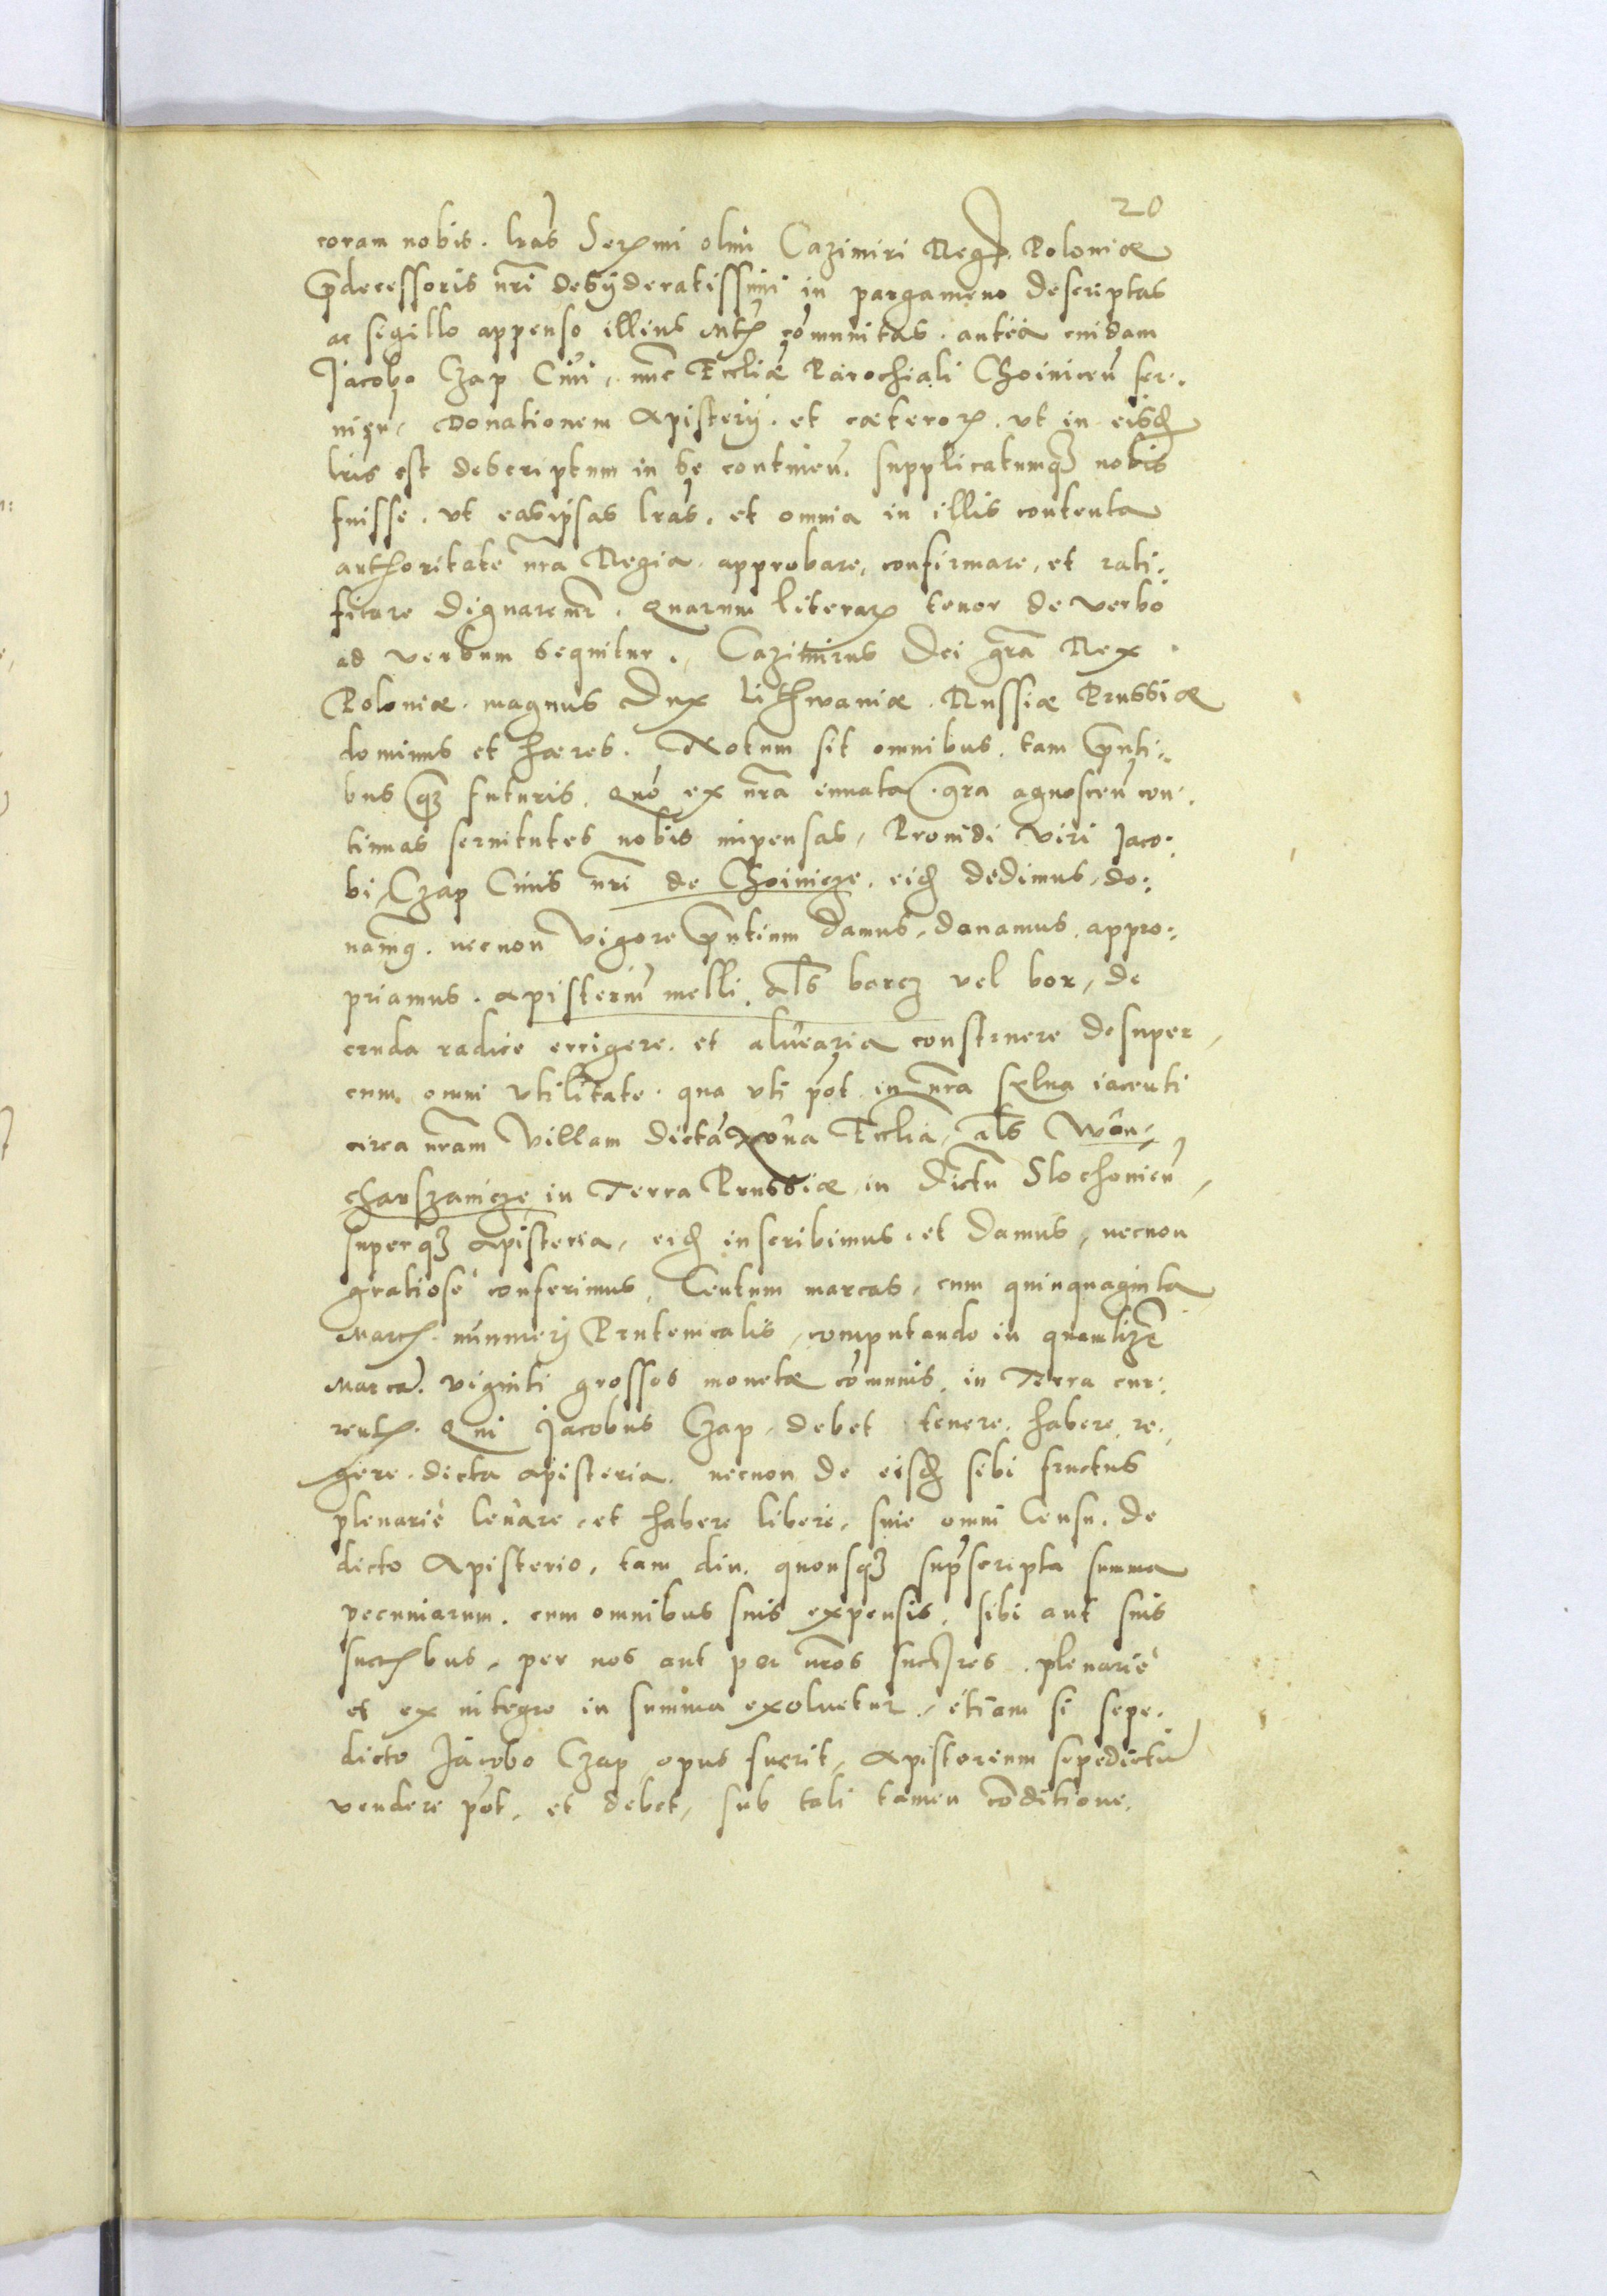 20
coram nobis. lrãs Serꝫmi olim Cazimiri Regꝭ Poloniæ
p̃decessoris nrĩ desyderatissimi in pargameno descriptas
ac sigillo appenso illius Mtꝭ cõmunitas. antea cuidam
Jacobo Czap Ciui, nunc Eccliæ Parochiali Choiniceñ ser:
uieñ, Donationem Apisterij. et cæteroꝝ. vt in eisdꝫ
lris est descriptum in se contineñ. supplicatumqꝫ nobis
fuisse. vt easipsas lrãs. et omnia in illis contenta
authoritate nrã Regia approbare, confirmare, et rati:
ficare dignaremr̃. Quarum literaꝝ tenor de verbo
ad verbum sequitur. Cazimirus Dei grã Rex
Poloniæ. magnus Dux Lithwaniæ. Russiæ Prussiæ
dominus et hæres. Notum sit omnibus. tam p̃nti:
bus q̃ꝫ futuris. Quõ ex nrã innata grã agnosceñ con:
tinuas seruitutes nobis impensas, Prouidi viri Jaco:
bi Czap Ciuis nrĩ de Choinicze. eidꝫ dedimus, do:
nam̃9. necnon vigore p̃ntium damus, donamus, appro:
priamus. apisteriũ melli, als̃ barcz vel bor, de
cruda radice errigere. et aluearia construere desuper,
cum omni vtilitate. qua vti põt in nrã sylua iacenti
circa nrãm villam dictã Noua Ecclia, als̃ Won-
charszanicze in Terra Prussiæ in dictũ Slochouieñ,
superqꝫ apisteria, eidꝫ inscribimus. et damus, necnon
gratiose conferimus, Centum marcas, cum quinquaginta
Marcꝭ. nummerj Prutenicalis, computando in quamlibꝫ
Marcã. viginti grossos monetæ cõmunis. in Terra cur:
rentꝭ. Qui Jacobus Czap, debet tenere. habere, re:
gere. dicta apisteria. necnon de eisdꝫ sibi fructus
plenariè leuare, et habere liberè, sine omni Censu. de
dicto Apisterio, tam diu, quousqꝫ supͣscripta summa
pecuniarum. cum omnibus suis expensis, sibi aut suis
succꝭbus, per nos aut per nrõs succꝭres plenariè
et ex integro in summa exoluetur, etiam si sepe:
dicto Jacobo Czap opus fuerit, Apisterium sepedictũ
vendere põt, et debet, sub tali tamen cõditione,